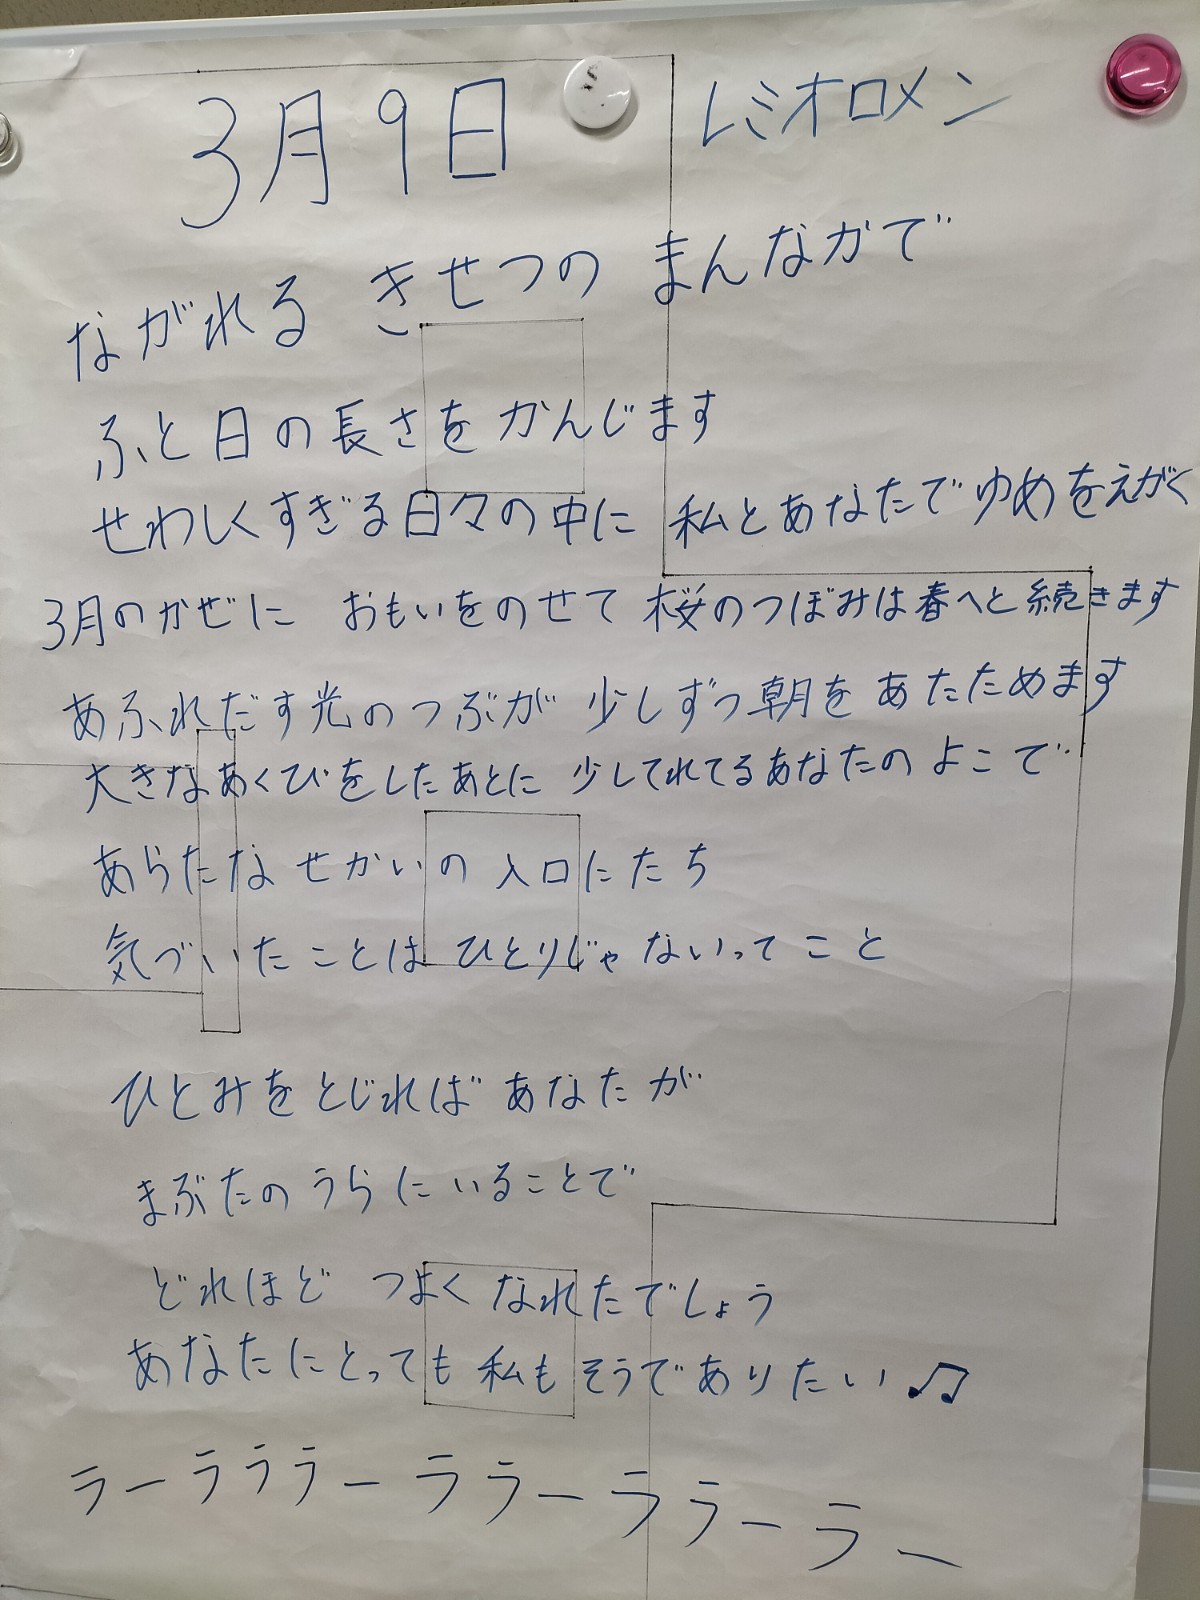 3月9日 レミオロメン
ながれる きせつの まんなかで
ふと日の長さを かんじます
せわしくすぎる日々の中に 私とあなたでゆめをえがく
3月のかぜに おもいをのせて 桜のつぼみは春へと続きます
あふれだす光のつぶが 少しずつ朝を あたためます
大きなあくびをしたあとに 少してれてるあなたの よこで
あらたな せかいの 入口にたち
気づいたことは ひとりじゃないってこと
ひとみをとじれば あなたが
まぶたの うらに いることで
どれほど つよく なれたでしょう
あなたにとっても 私も そうでありたい♫
ラーララララー ララーララーラー